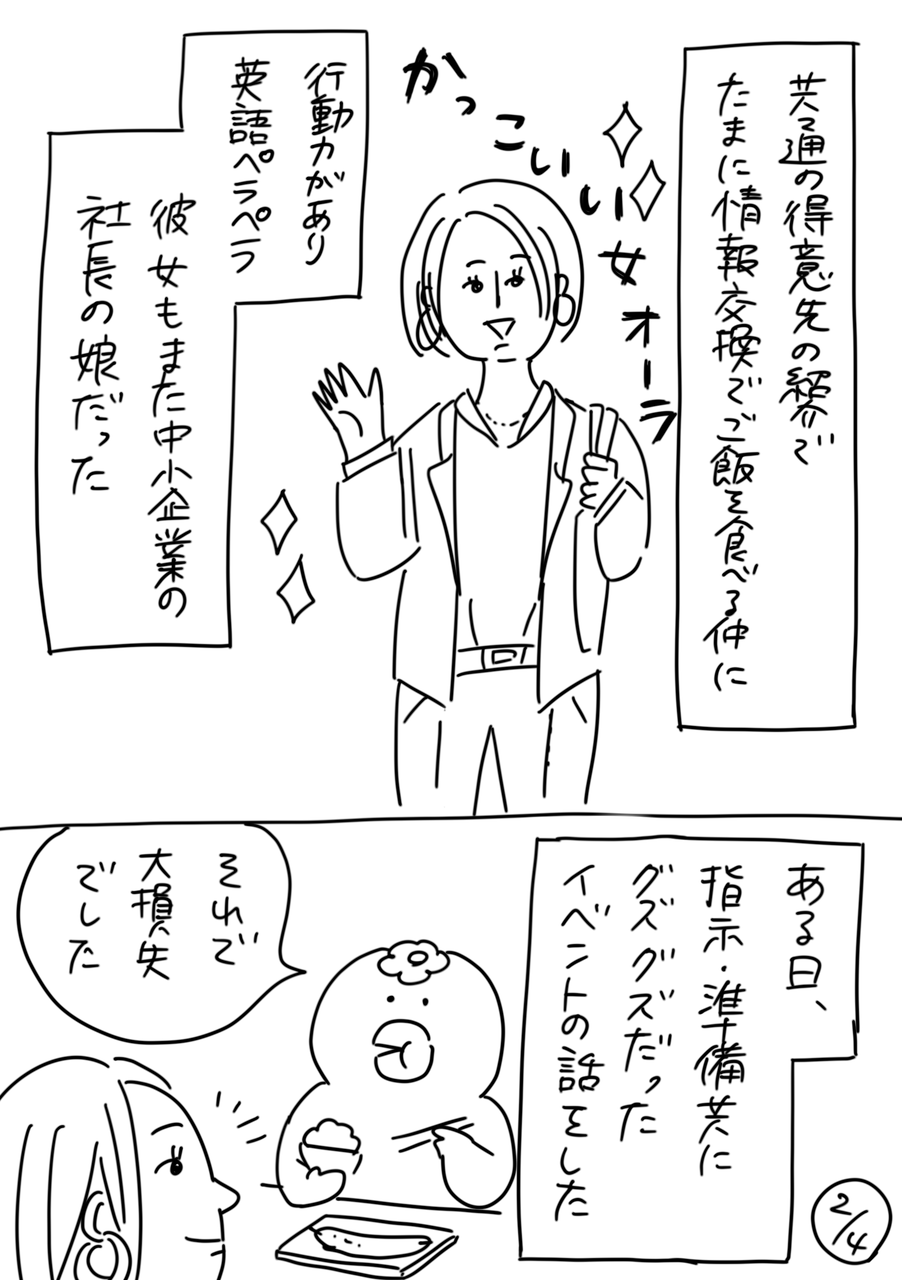 共通の得意先の紹介で
たまに情報交換でご飯を食べる仲に
かっこいい女オーラ
行動力があり
英語ペラペラ
彼女もまた中小企業の
社長の娘だった
ある日、
指示・準備共に
グズグズだった
イベントの話をした
それで
大損失
でした
2/4